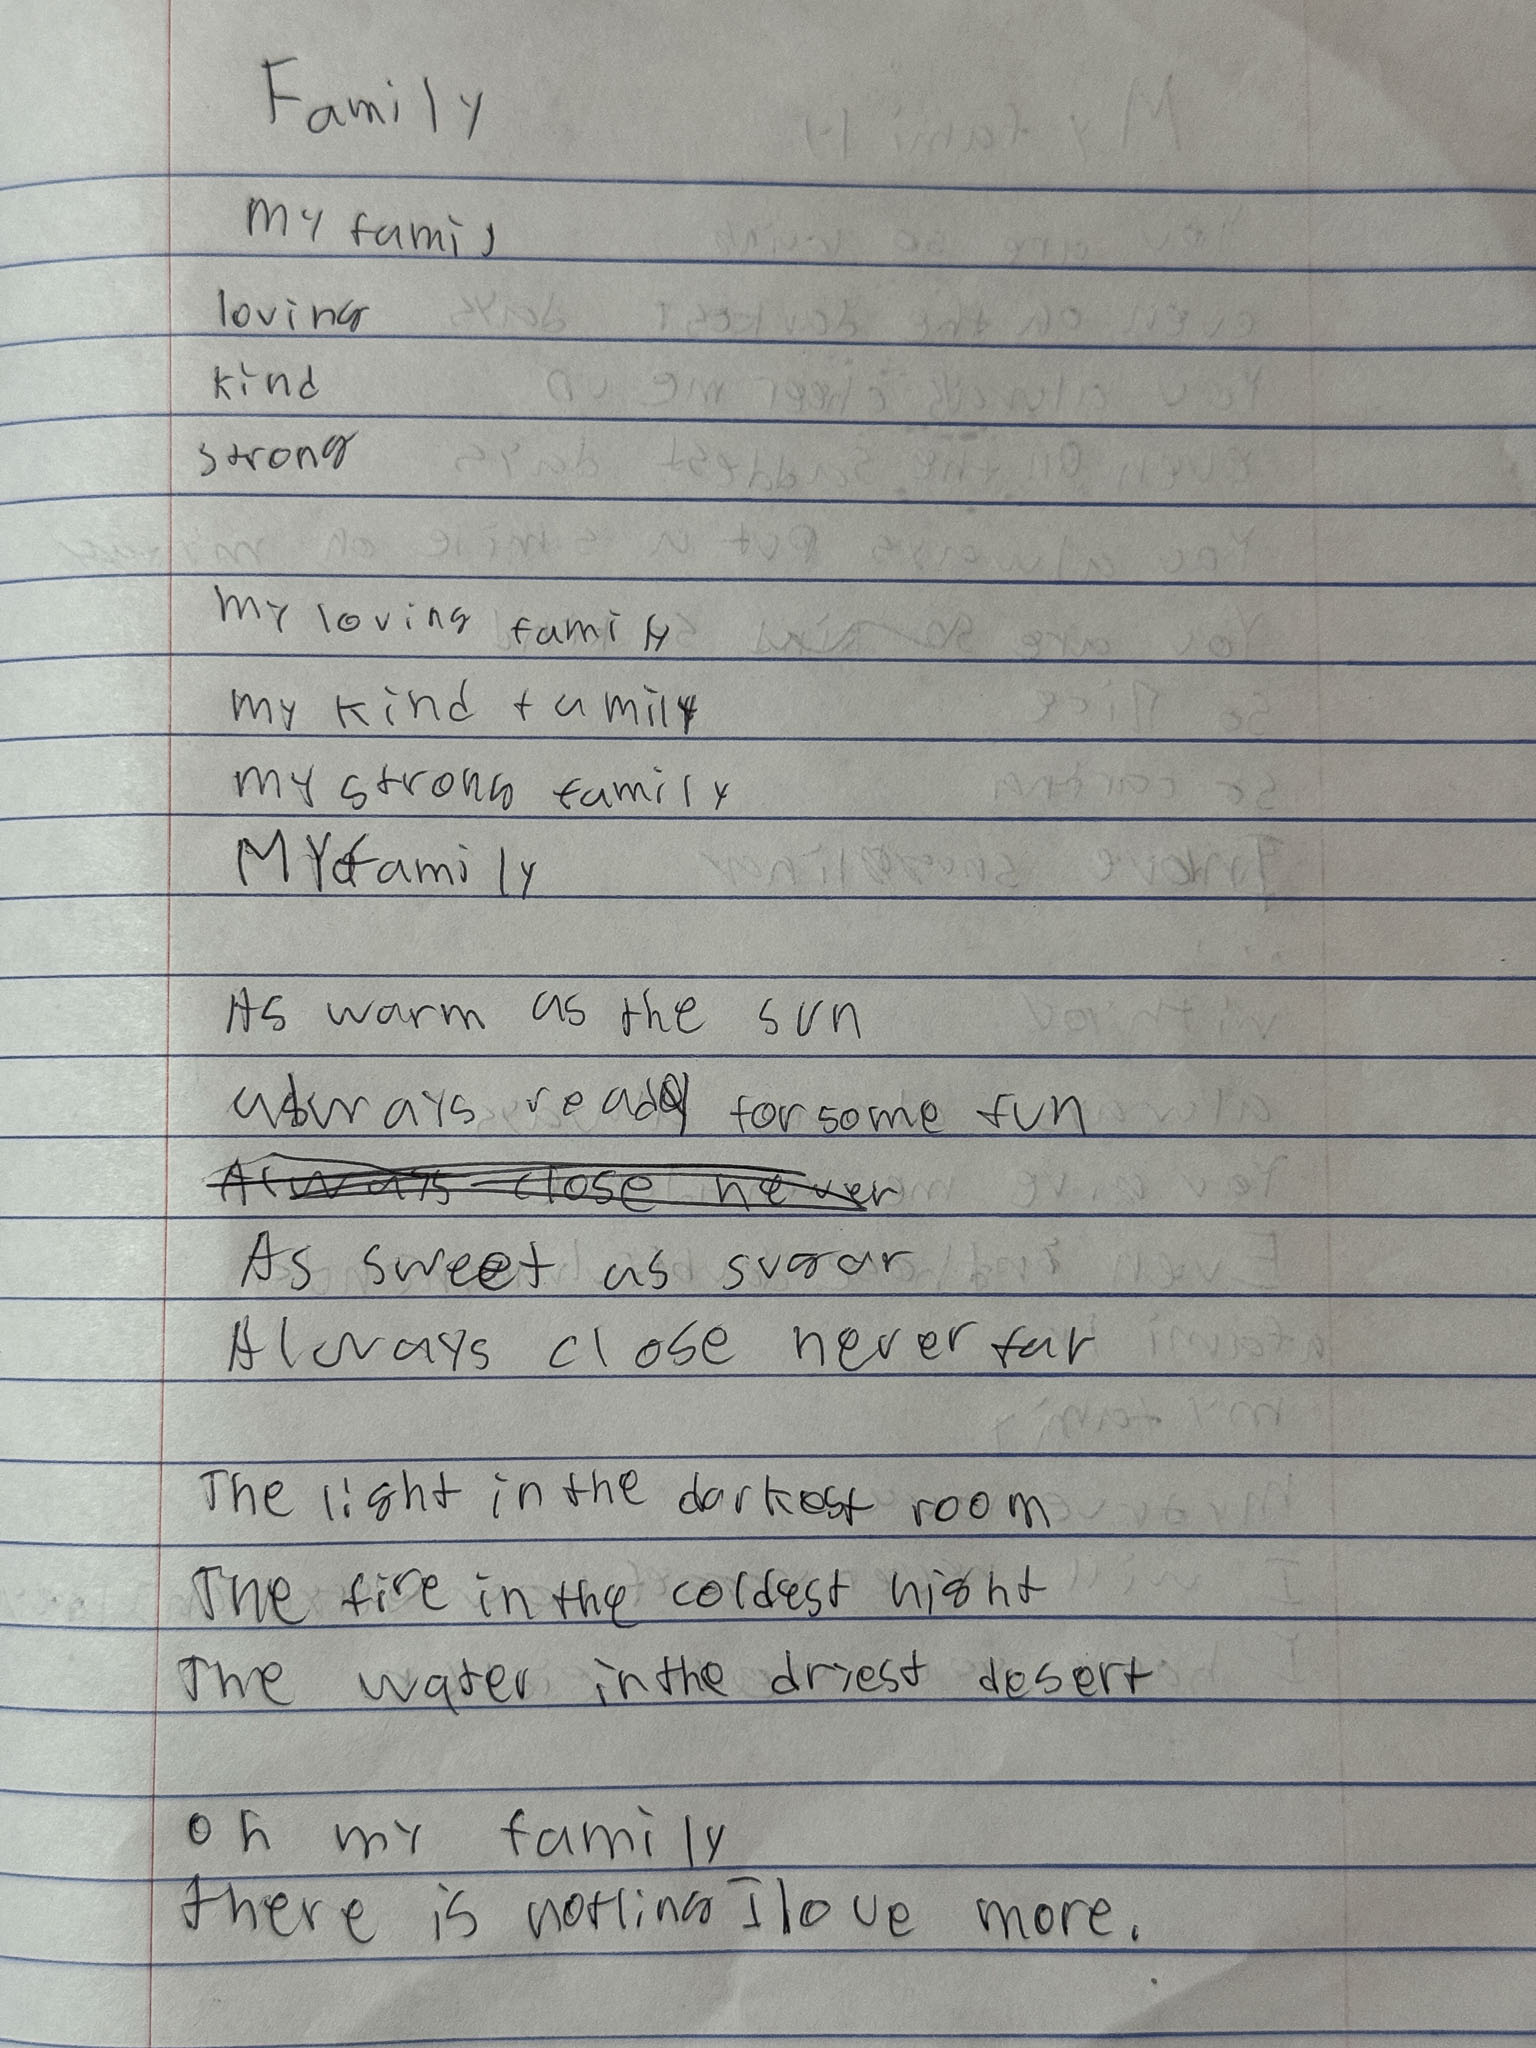 Family
my famil
loving
kind
strong
my loving family
my kind family
my strong family
MY family
As warm as the sun
always ready for some fun
Always close never
As sweet as sugar
Always close never far
The light in the darkest room
The fire in the coldest night
The water in the driest desert
oh my family
there is nothing I love more.